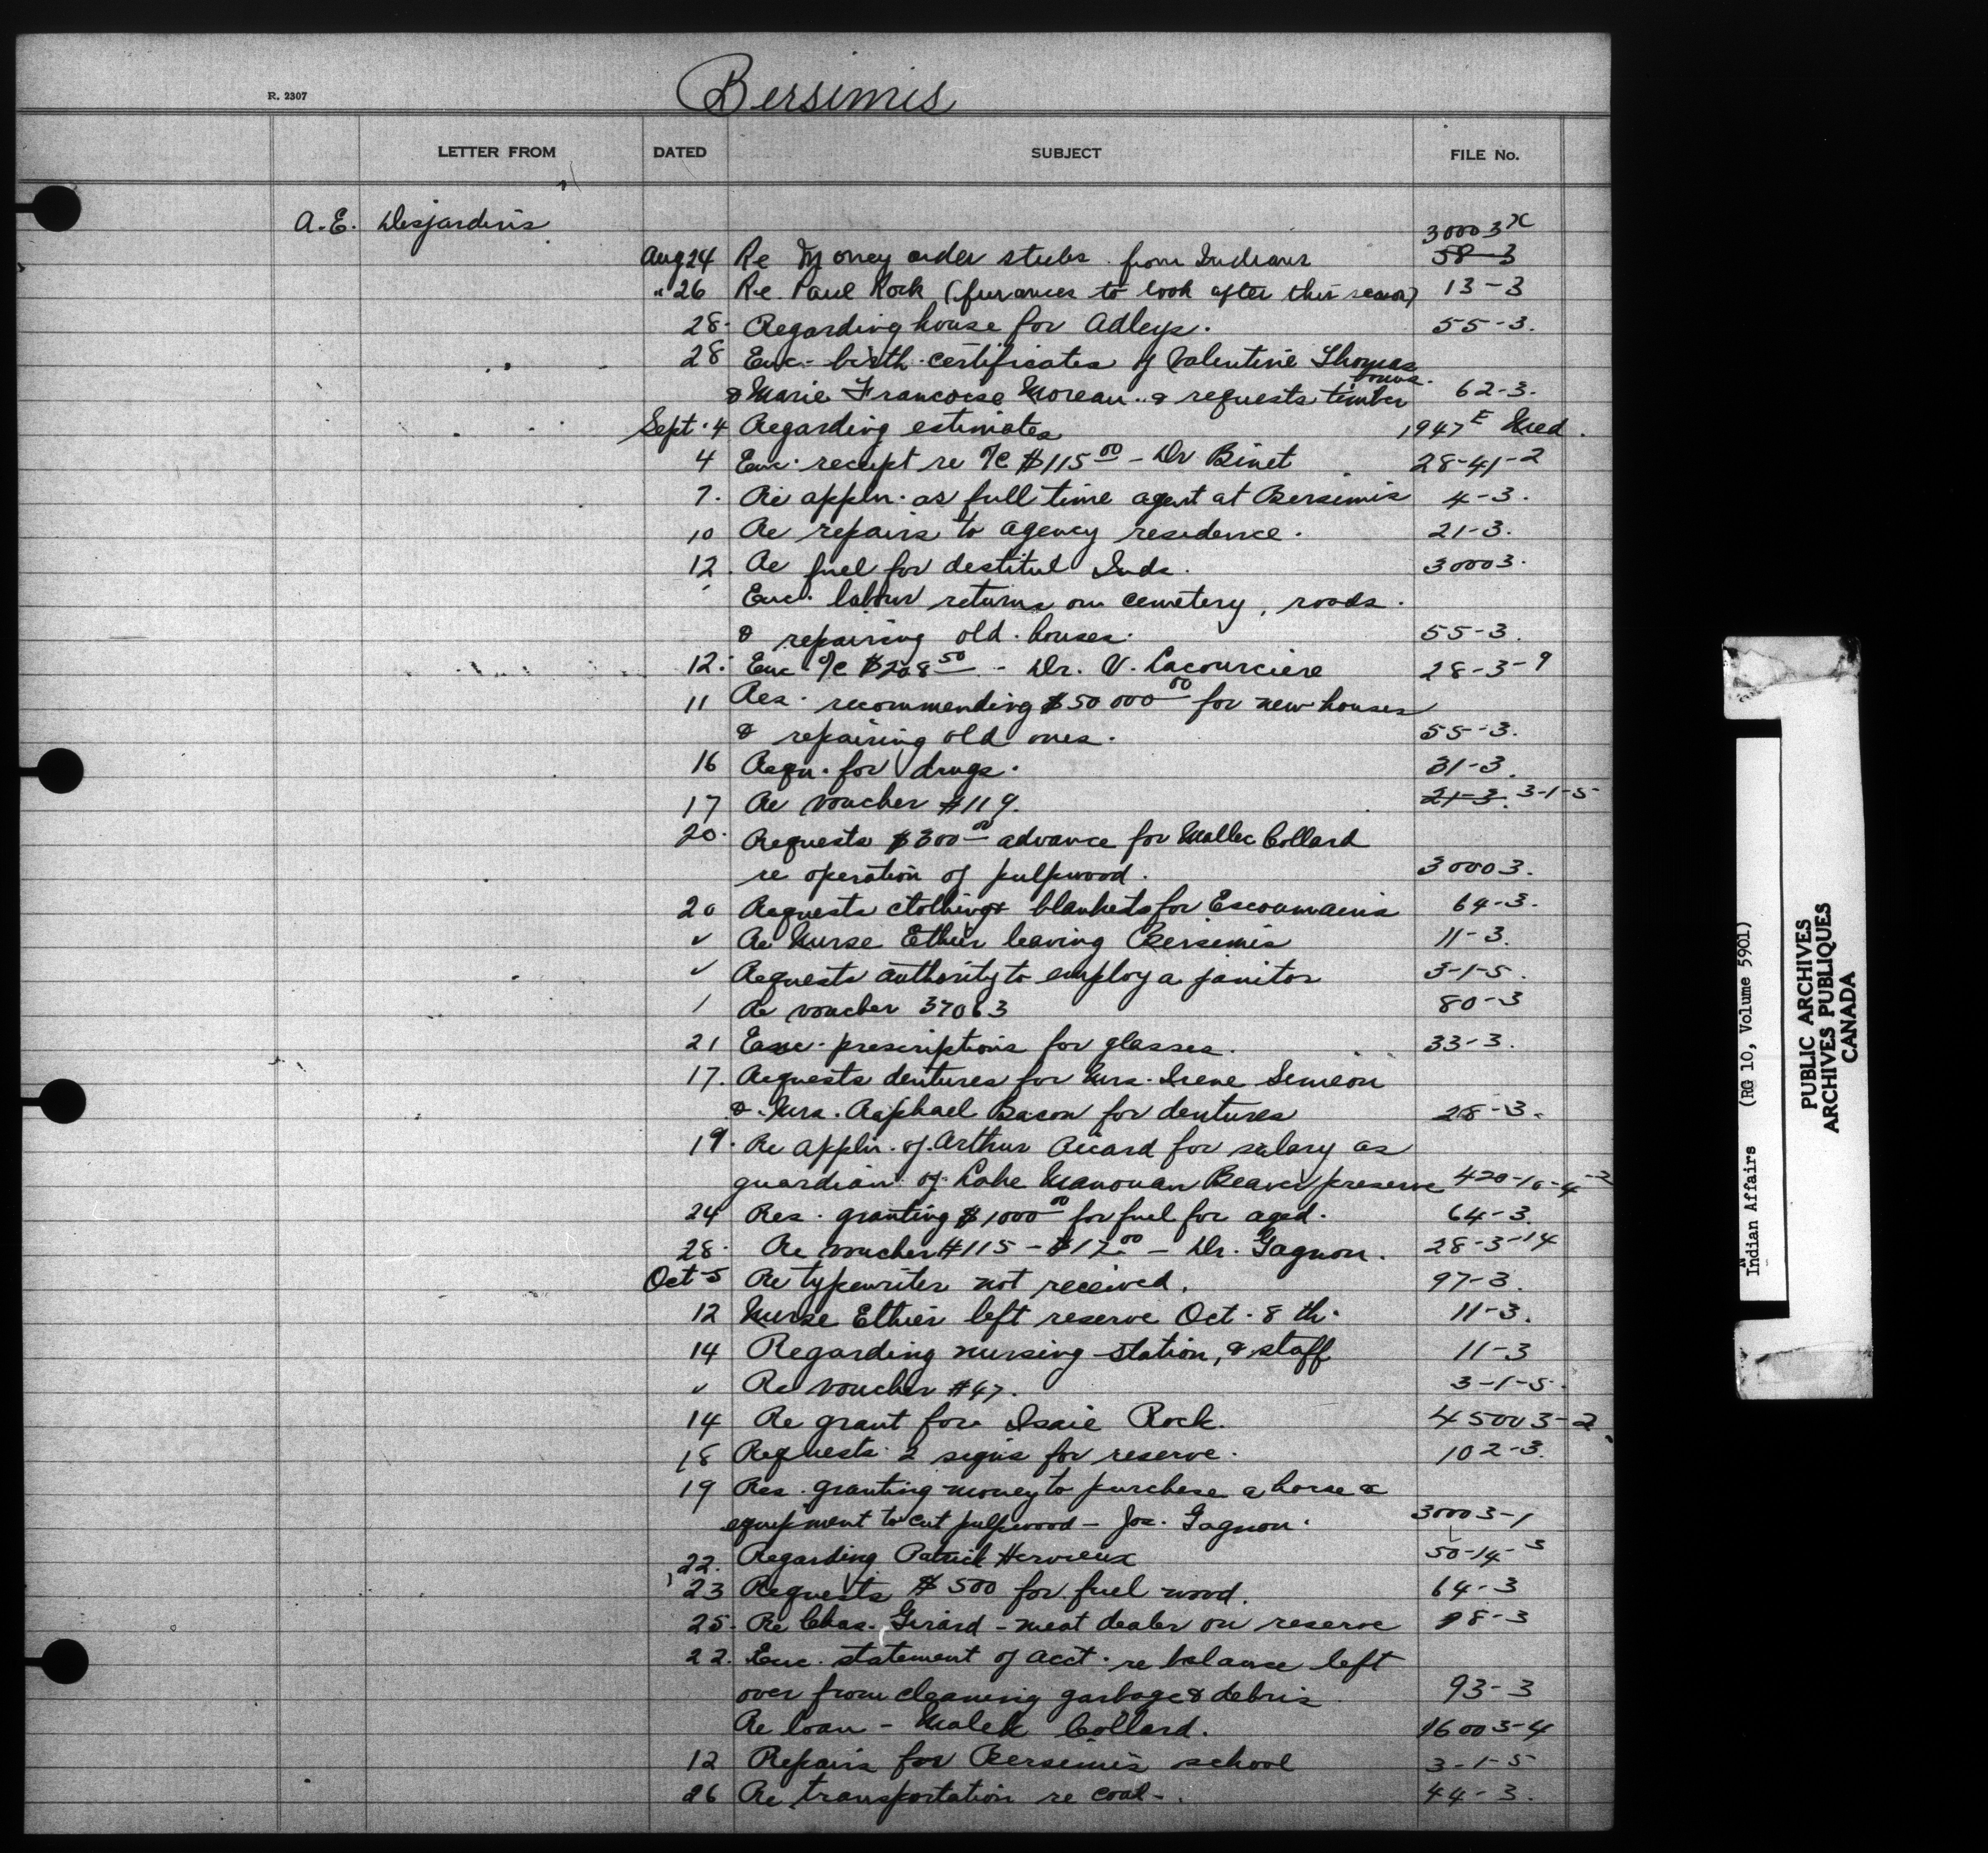 Bersimis
R. 2307
LETTER FROM DATED SUBJECT FILE No.
A.E. Desjardins 30003 x
Aug 24 Re Money order stubs from Indians 58-3
" 26 Re Paul Rock (furnaces to look after this season) 13-3
28. Regarding house for Adleys. 55-3.
28 Enc. birth certificates of Valentine Thomas
& Marie Francoise Moreau & requests timber 62-3.
Sept. 4 Regarding estimates 1947 E Med.
4 Enc. receipt re %c $115 00 - Dr Binet 28-41-2
7. Re appln. as full time agent at Bersimis 4-3.
10 Re repairs to agency residence. 21-3.
12. Re fuel for destitut Inds. 30003.
Enc. labour returns on cemetery, roads.
& repairing old houses. 55-3.
12. Enc %c $208 50 - Dr. V. Lacourciere 28-3-9
11 Res. recommending $50 000 00 for new houses
& repairing old ones. 55-3.
16 Reqn. for drugs. 31-3.
17 Re voucher #119. 21-3. 3-1-5
20. Requests $300 00 advance for Mallec Collard
re operation of pulpwood. 30003.
20 Requests clothing & blankets for Escoumains 64-3.
✓ Re Nurse Ethier leaving Bersimis 11-3.
✓ Requests authority to employ a janitor 3-1-5.
1 Re voucher 37063 80-3
21 Enc. prescriptions for glasses. 33-3.
17. Requests dentures for Mrs. Irene Simeon
& Mrs. Raphael Bacon for dentures 28-3.
19. Re appln. of Arthur Ricard for salary as
guardian of Lake Manouan Beaver preserve 420-10-4-2
24 Res. granting $1000 00 for fuel for aged. 64-3.
28. Re voucher #115 - $17 00 - Dr. Gagnon. 28-3-14
Oct 5 Re typewriter not received. 97-3
12 Nurse Ethier left reserve Oct. 8 th. 11-3.
14 Regarding nursing station, & staff 11-3
✓ Re voucher #47. 3-1-5.
14 Re grant for Isaie Rock. 45003-2
18 Requests 2 signs for reserve. 102-3.
19 Res. granting money to purchase a horse &
equipment to cut pulpwood - Jos. Gagnon. 30003-1
22. Regarding Patrick Hervieux 50-14-3
23 Requests $500 for fuel wood. 64-3
25. Re Chas. Girard - meat dealer on reserve 98-3
22. Enc. statement of acct. re balance left
over from cleaning garbage & debris 93-3
Re loan - Malek Collard. 16003-4
12 Repairs for Bersimis school 3-1-5
26 Re transportation re coal -. 44-3.
Indian Affairs (RG 10, Volume 5901)
PUBLIC ARCHIVES
ARCHIVES PUBLIQUES
CANADA